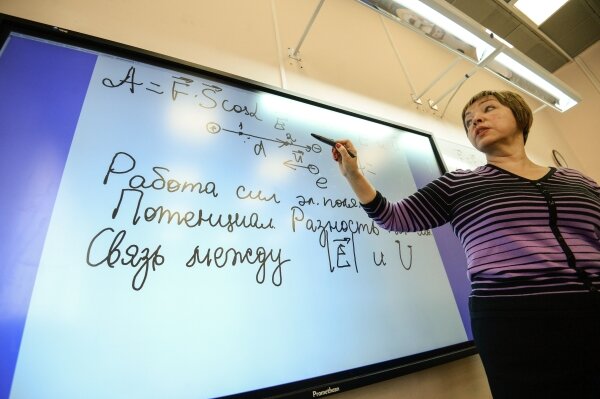 A = F⃗ · S⃗ cosα
E
1 2
d
U⃗
e
Работа сил эл. поля
Потенциал. Разность
Связь между |E⃗| и U
Promethean